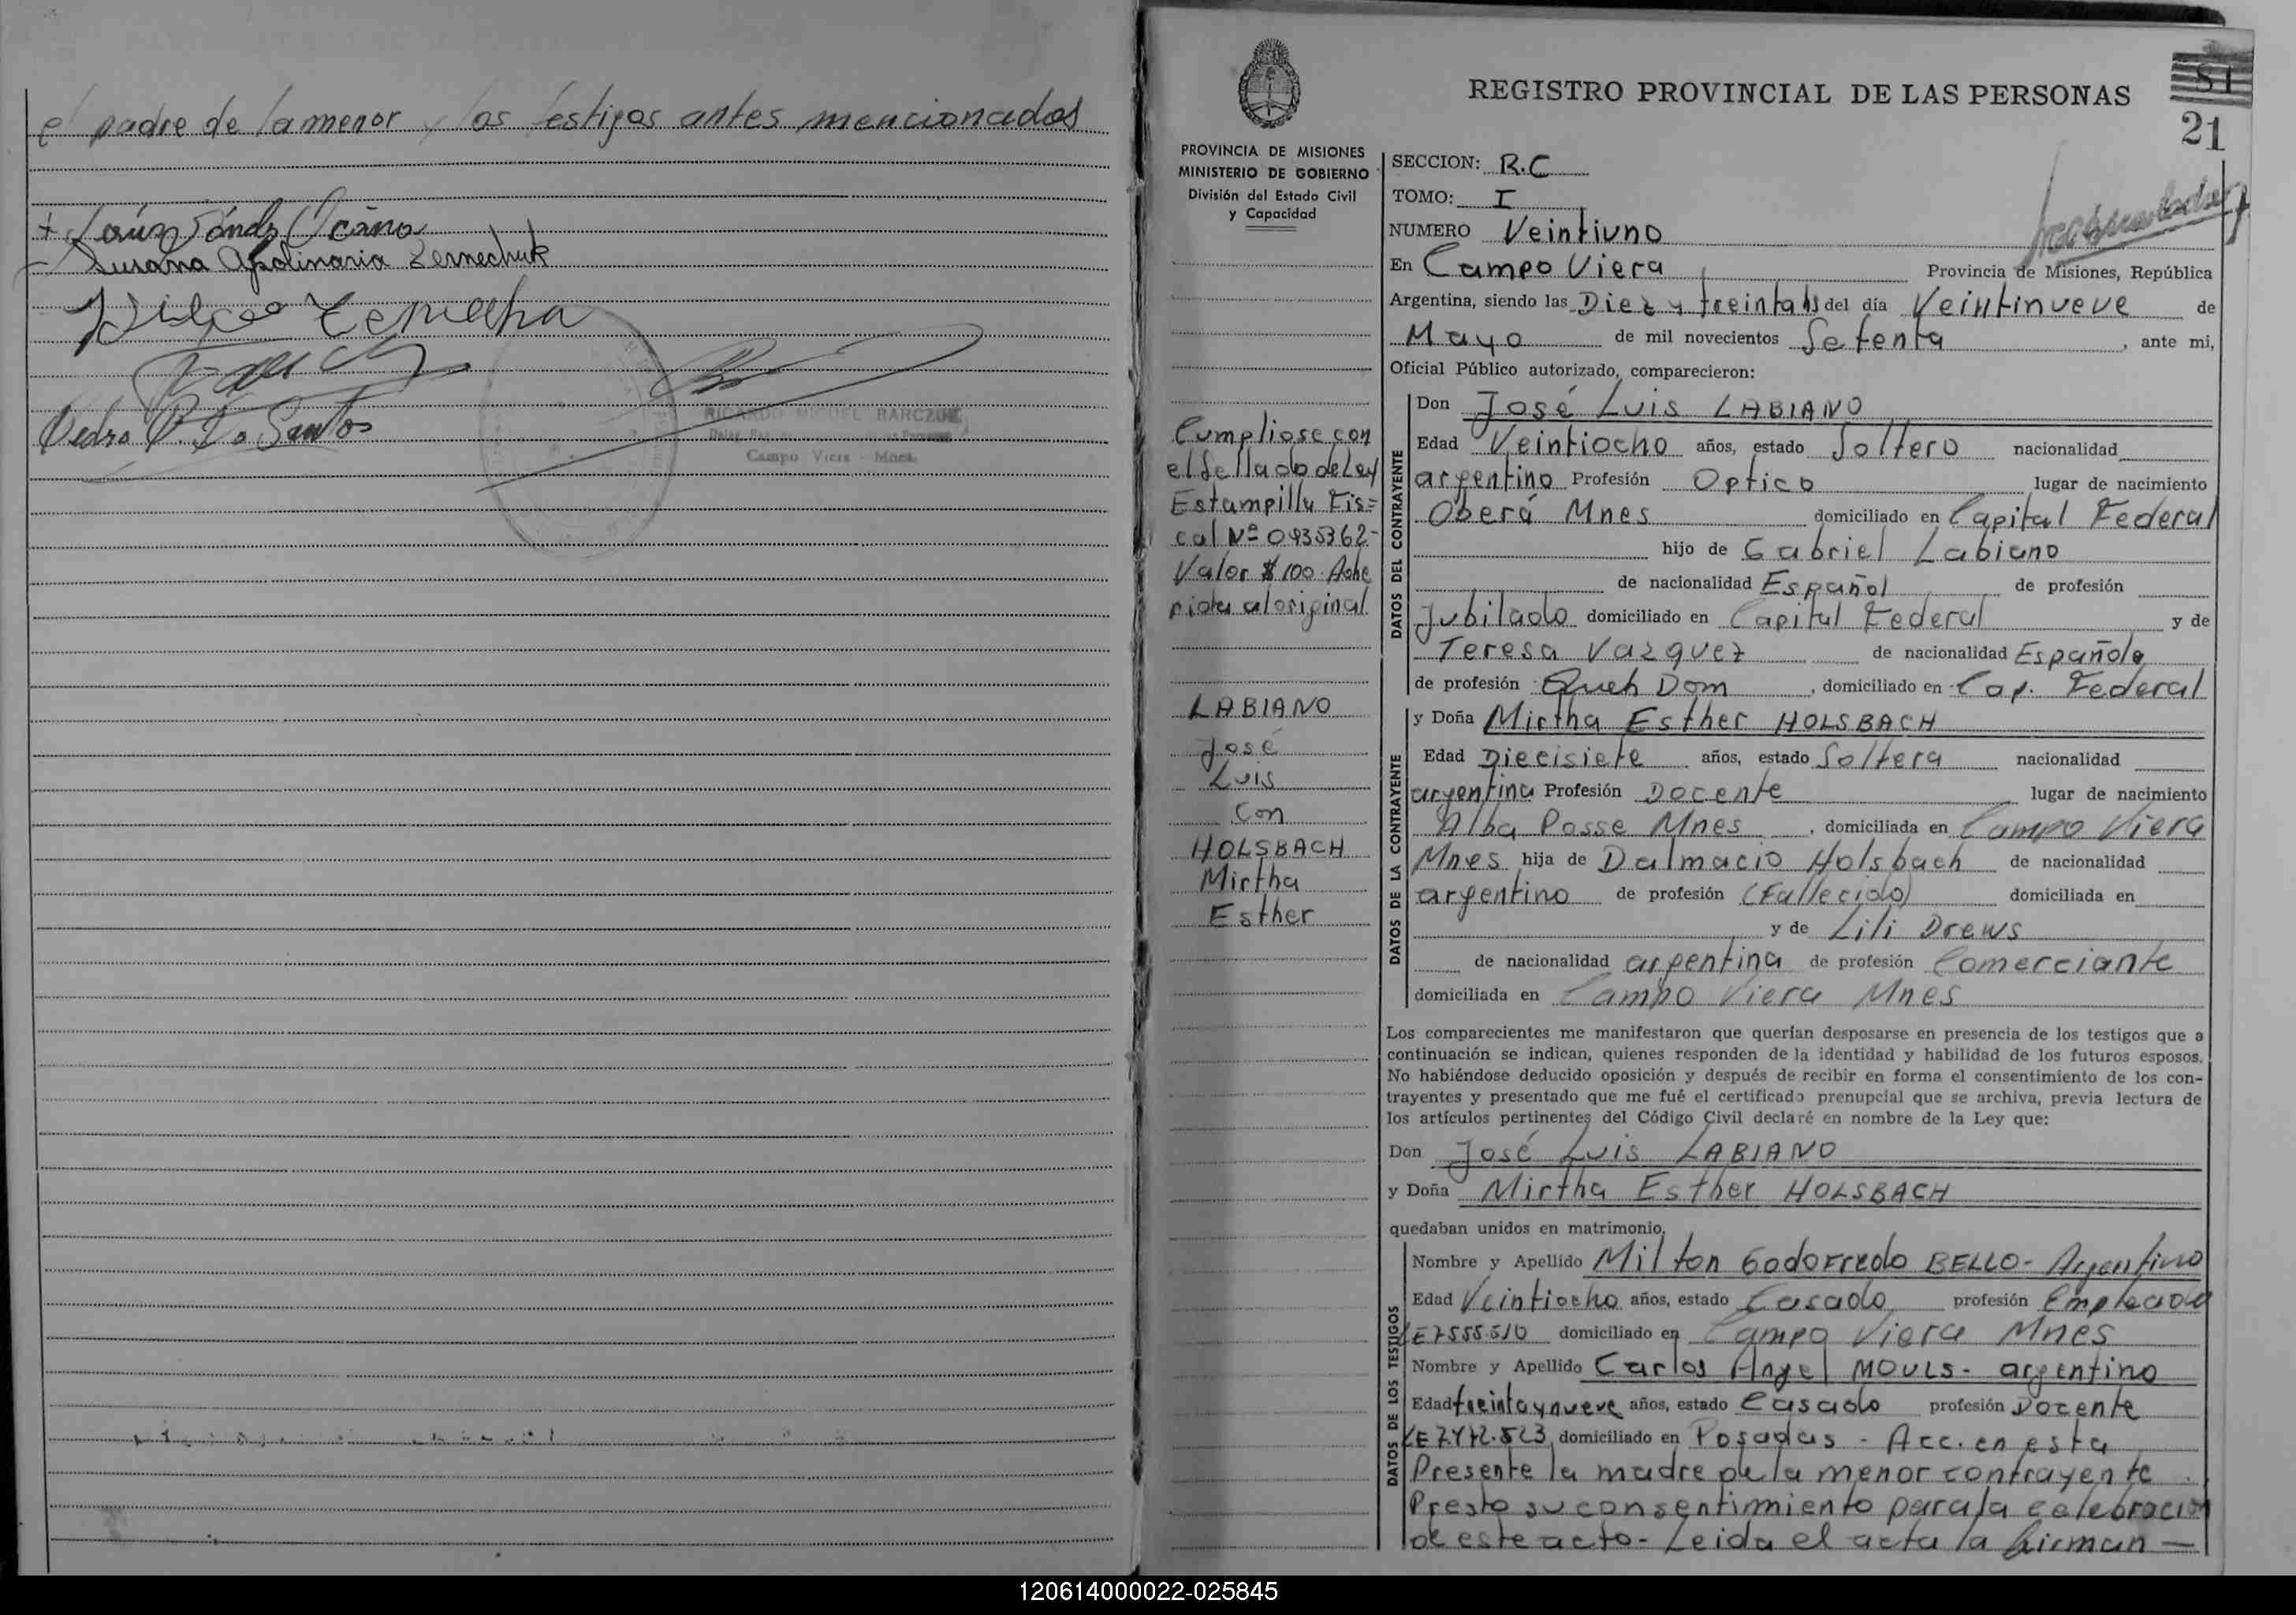 el padre de la menor y los testigos antes mencionados
Susana Apolinaria Zernechuk
Pedro P. Do Santos
RICARDO MIGUEL BARCZUK
Campo Viera - Mnes.
REGISTRO PROVINCIAL DE LAS PERSONAS
21
PROVINCIA DE MISIONES
MINISTERIO DE GOBIERNO
División del Estado Civil
y Capacidad
Cumpliose con
el Sellado de Ley
Estampilla Fis=
cal Nº 0935362-
Valor $ 100. Adhe
rida al original
LABIANO
José
Luis
Con
HOLSBACH
Mirtha
Esther
SECCION: R.C
TOMO: I
NUMERO Veintiuno
En Campo Viera Provincia de Misiones, República
Argentina, siendo las Diez y treinta hs del día Veintinueve de
Mayo de mil novecientos Setenta, ante mi,
Oficial Público autorizado, comparecieron:
DATOS DEL CONTRAYENTE
Don José Luis LABIANO
Edad Veintiocho años, estado Soltero nacionalidad
argentino Profesión Optico lugar de nacimiento
Oberá Mnes domiciliado en Capital Federal
hijo de Gabriel Labiano
de nacionalidad Español de profesión
Jubilado domiciliado en Capital Federal y de
Teresa Vazquez de nacionalidad Española
de profesión Queh Dom, domiciliado en Cap. Federal
DATOS DE LA CONTRAYENTE
y Doña Mirtha Esther HOLSBACH
Edad Diecisiete años, estado Soltera nacionalidad
argentina Profesión Docente lugar de nacimiento
Alba Posse Mnes, domiciliada en Campo Viera
Mnes hija de Dalmacio Holsbach de nacionalidad
argentino de profesión (Fallecido) domiciliada en
y de Lili Drews
de nacionalidad argentina de profesión Comerciante
domiciliada en Campo Viera Mnes
Los comparecientes me manifestaron que querían desposarse en presencia de los testigos que a
continuación se indican, quienes responden de la identidad y habilidad de los futuros esposos.
No habiéndose deducido oposición y después de recibir en forma el consentimiento de los con-
trayentes y presentado que me fué el certificado prenupcial que se archiva, previa lectura de
los artículos pertinentes del Código Civil declaré en nombre de la Ley que:
Don José Luis LABIANO
y Doña Mirtha Esther HOLSBACH
quedaban unidos en matrimonio.
DATOS DE LOS TESTIGOS
Nombre y Apellido Milton Godofredo BELLO- Argentino
Edad Veintiocho años, estado Casado profesión Empleado
LE 7555.510 domiciliado en Campo Viera Mnes
Nombre y Apellido Carlos Angel MOULS- argentino
Edad treinta y nueve años, estado Casado profesión Docente
domiciliado en Posadas - Acc. en esta
Presente la madre de la menor contrayente.
Presto su consentimiento para la celebracion
de este acto- Leida el acta la firman —
120614000022-025845